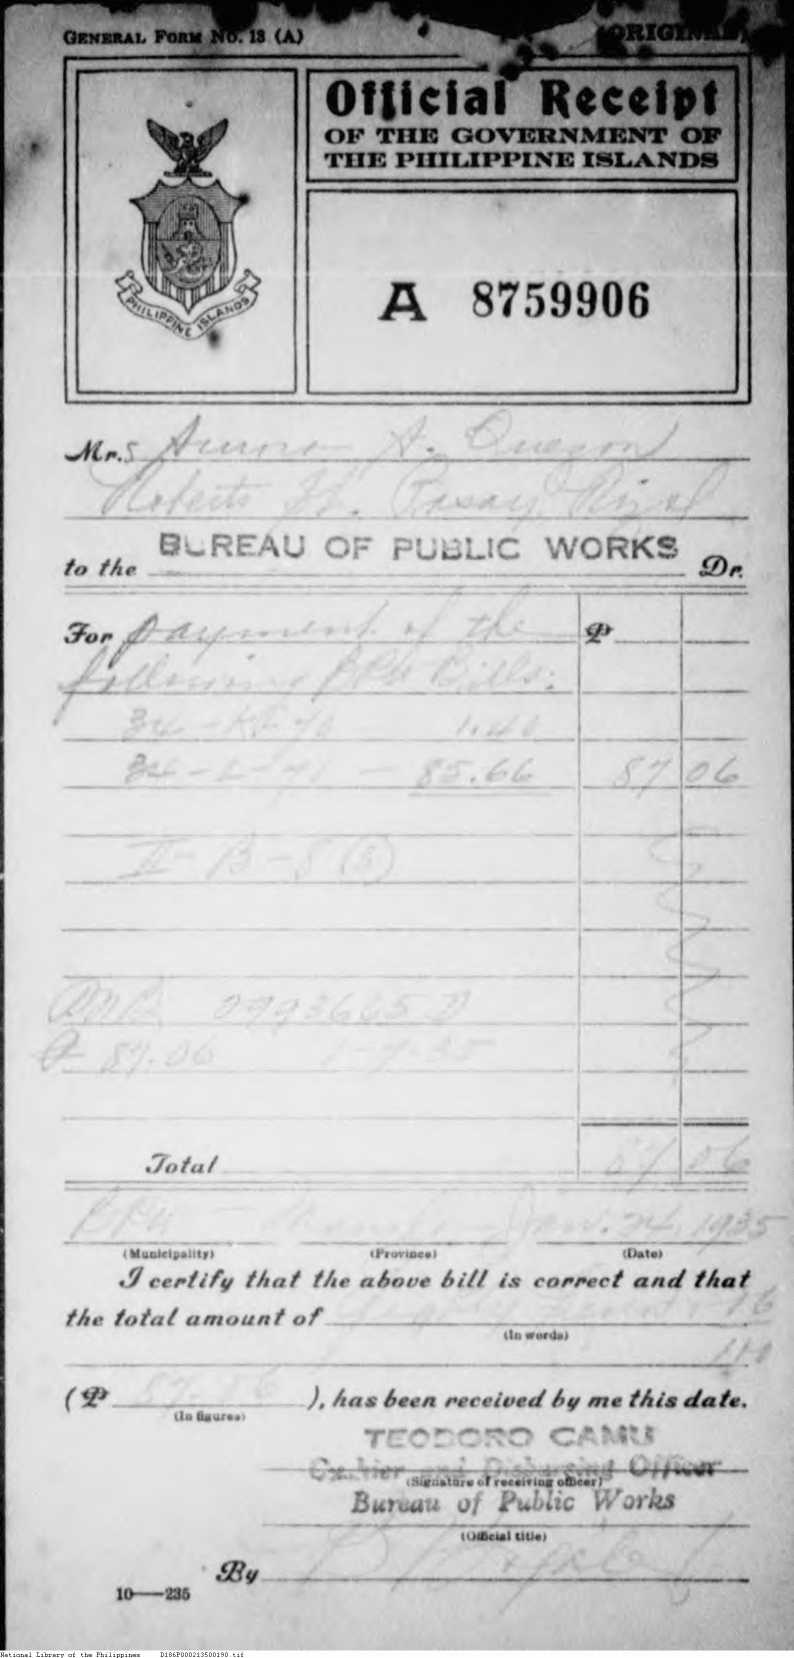 GENERAL FORM NO. 13 (A) (ORIGINAL)
Official Receipt
OF THE GOVERNMENT OF
THE PHILIPPINE ISLANDS
PHILIPPINE ISLANDS
A 8759906
Mrs Aurora A. Quezon
Roberts St. Pasay, Rizal
to the BUREAU OF PUBLIC WORKS Dr.
For payment of the ₱
following BPW Bills:
1.40
85.66 87 06
II-B-8
0993665 D
₱ 87.06 35
Total 87 06
BPW - Manila Jan. 24, 1935
(Municipality) (Province) (Date)
I certify that the above bill is correct and that
the total amount of Eighty seven & 06
(In words)
100
(₱ 87.06 ), has been received by me this date.
(In figures)
TEODORO CAMU
Cashier and Disbursing Officer
(Signature of receiving officer)
Bureau of Public Works
(Official title)
By
10—235
National Library of the Philippines D186P000213500190.tif